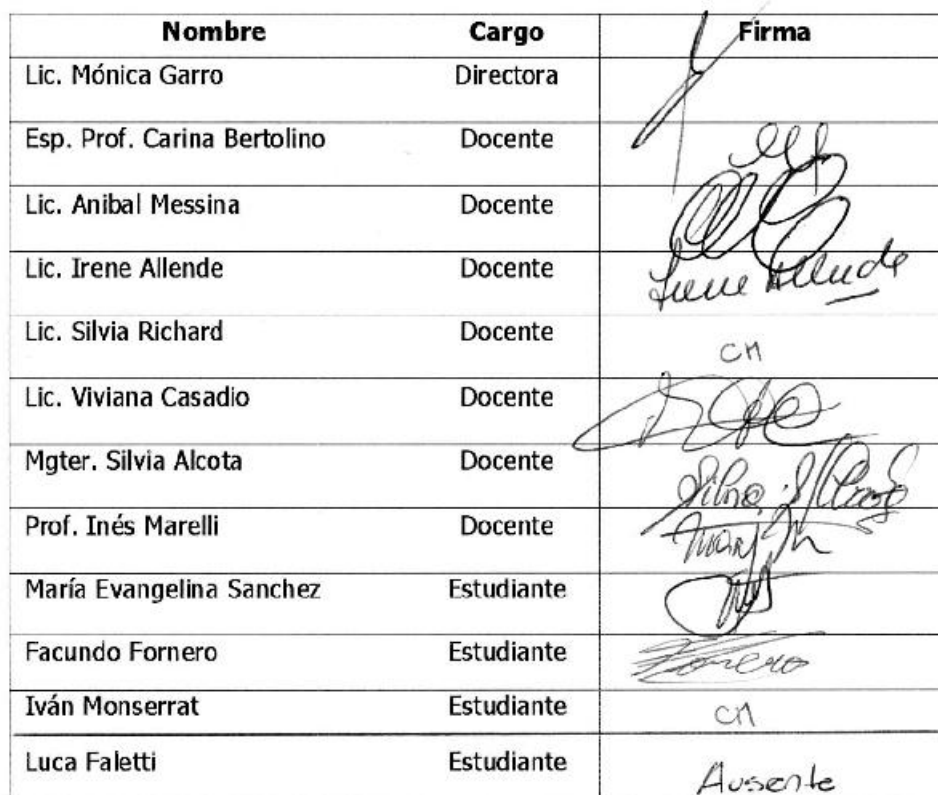 Nombre Cargo Firma
Lic. Mónica Garro Directora
Esp. Prof. Carina Bertolino Docente
Lic. Anibal Messina Docente
Lic. Irene Allende Docente Irene Allende
Lic. Silvia Richard Docente CM
Lic. Viviana Casadio Docente
Mgter. Silvia Alcota Docente Silvia
Prof. Inés Marelli Docente
María Evangelina Sanchez Estudiante
Facundo Fornero Estudiante Fornero
Iván Monserrat Estudiante CM
Luca Faletti Estudiante Ausente